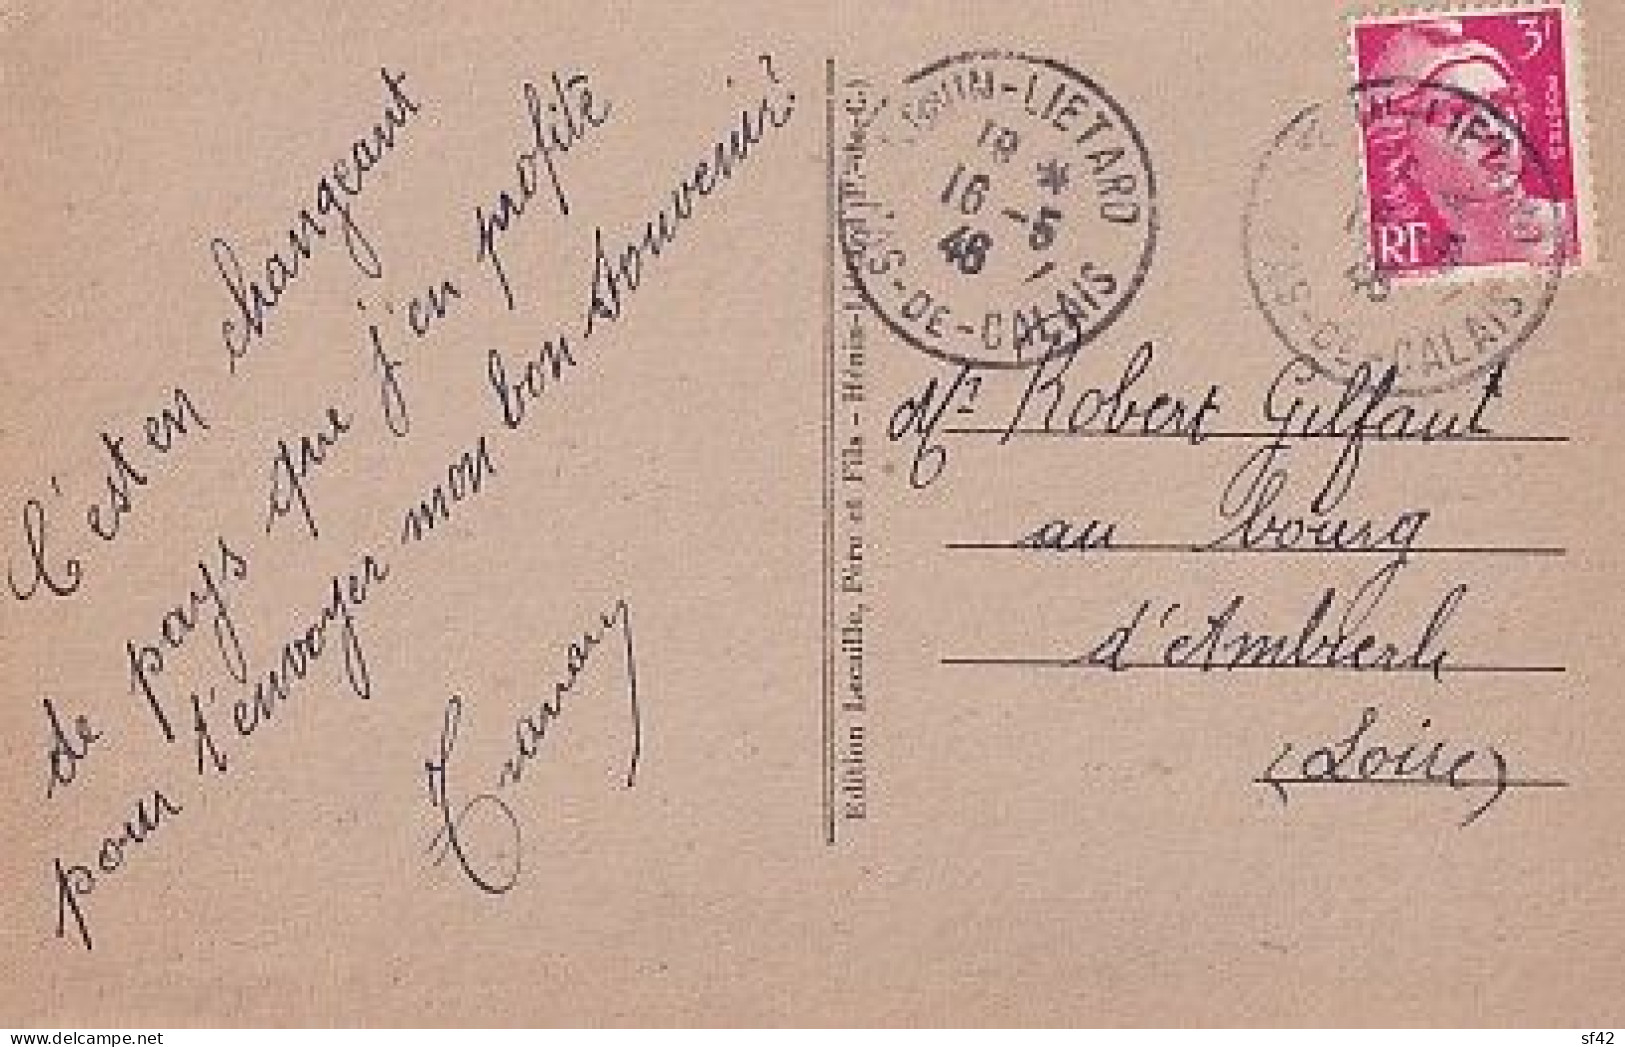 C'est en changeant
de pays que j'en profite
pour t'envoyer mon bon souvenir
Edition Lecaille, Père et Fils - Hénin-Liétard (P.-de-C.)
LIETARD
18 *
16 - 5
48
S-DE-CALAIS
3f
RF
LIETARD
S-DE-CALAIS
Mr Robert Gilfaut
au bourg
d'Ambierle
(Loire)
www.delcampe.net
sf42